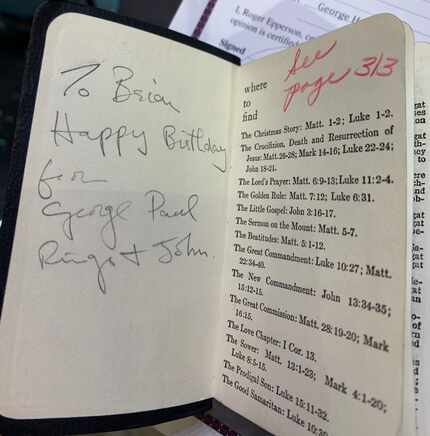 George H
I, Roger Epperson, con
opinion is certifi
Signed
To Brian
Happy Birthday
from
George Paul
Ringo + John.
See
page 313
where
to
find
The Christmas Story: Matt. 1-2; Luke 1-2.
The Crucifixion, Death and Resurrection of
Jesus: Matt. 26-28; Mark 14-16; Luke 22-24;
John 18-21.
The Lord's Prayer: Matt. 6:9-13; Luke 11:2-4.
The Golden Rule: Matt. 7:12; Luke 6:31.
The Little Gospel: John 3:16-17.
The Sermon on the Mount: Matt. 5-7.
The Beatitudes: Matt. 5:1-12.
The Great Commandment: Luke 10:27; Matt.
22:34-40.
The New Commandment: John 13:34-35;
15:12-15.
The Great Commission: Matt. 28:19-20; Mark
16:15.
The Love Chapter: I Cor. 13.
The Sower: Matt. 13:1-23; Mark 4:1-20;
Luke 8:5-15.
The Prodigal Son: Luke 15:11-32.
The Good Samaritan: Luke 10:30